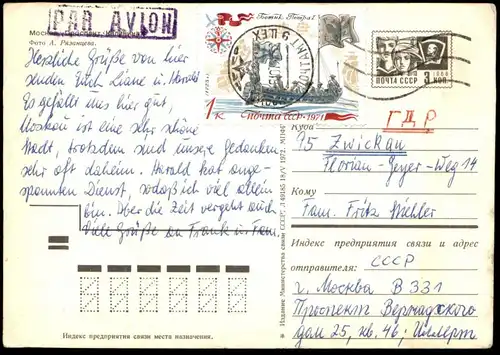 PAR AVION
Москва. Проспект Калинина
Фото А. Рязанцева.
Herzliche Grüße von hier
senden Euch Liane u. Harald
Es gefällt mir hier gut,
Moskau ist eine sehr schöne
Stadt, trotzdem sind unsere Gedanken
sehr oft daheim. Harald hat ange-
spannten Dienst, sodaß ich viel allein
bin. Aber die Zeit vergeht auch
Viele Grüße an Frank u. Fam.
Индекс предприятия связи места назначения.
Ботик Петра I
1 К
ПОЧТА СССР • 1971
ПОЧТА СССР
1966
3 КОП
ГДР
Куда
95 Zwickau
Florian-Geyer-Weg 14
Кому
Fam. Fritz
Индекс предприятия связи и адрес
отправителя: СССР
г. Москва В 331
Проспект Вернадского
дом 25, кв. 46;
Издание Министерства связи СССР.